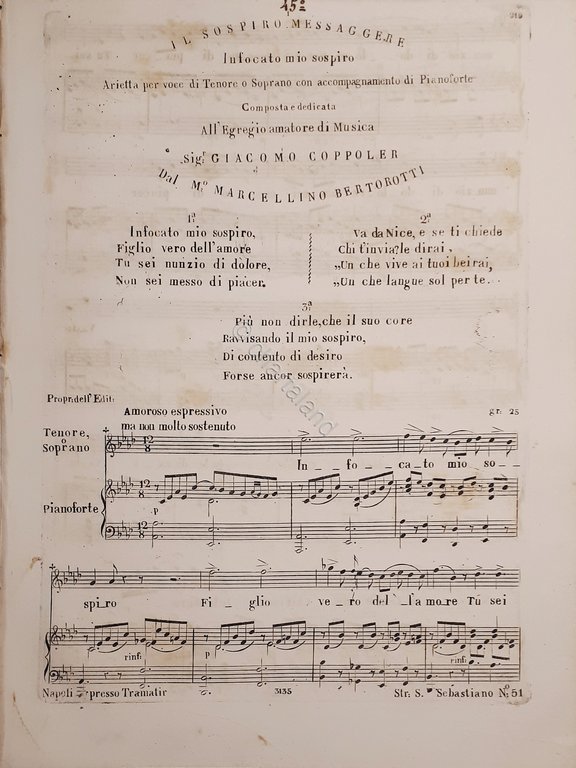 15ª
IL SOSPIRO MESSAGGERE
Infocato mio sospiro
Arietta per voce di Tenore o Soprano con accompagnamento di Pianoforte
Composta e dedicata
All'Egregio amatore di Musica
Sigr. GIACOMO COPPOLER
Dal Mo. MARCELLINO BERTOROTTI
1ª
Infocato mio sospiro,
Figlio vero dell'amore
Tu sei nunzio di dolore,
Non sei messo di piacer.
2ª
Va da Nice, e se ti chiede
Chi t'invia? le dirai,
„Un che vive ai tuoi bei rai,
„Un che langue sol per te.
3ª
Più non dirle, che il suo core
Ravvisando il mio sospiro,
Di contento di desiro
Forse ancor sospirerà.
Propr. dell' Edit:
gr: 25
Amoroso espressivo
ma non molto sostenuto
Tenore,
o Soprano
In__fo__ca_to mio so__
Pianoforte
p
spi_ro Fi_glio ve_ro del_l'a mo_re Tu sei
rinf: p rinf:
Napoli presso Tramatir 3135 Str: S. Sebastiano No. 51
maltaland